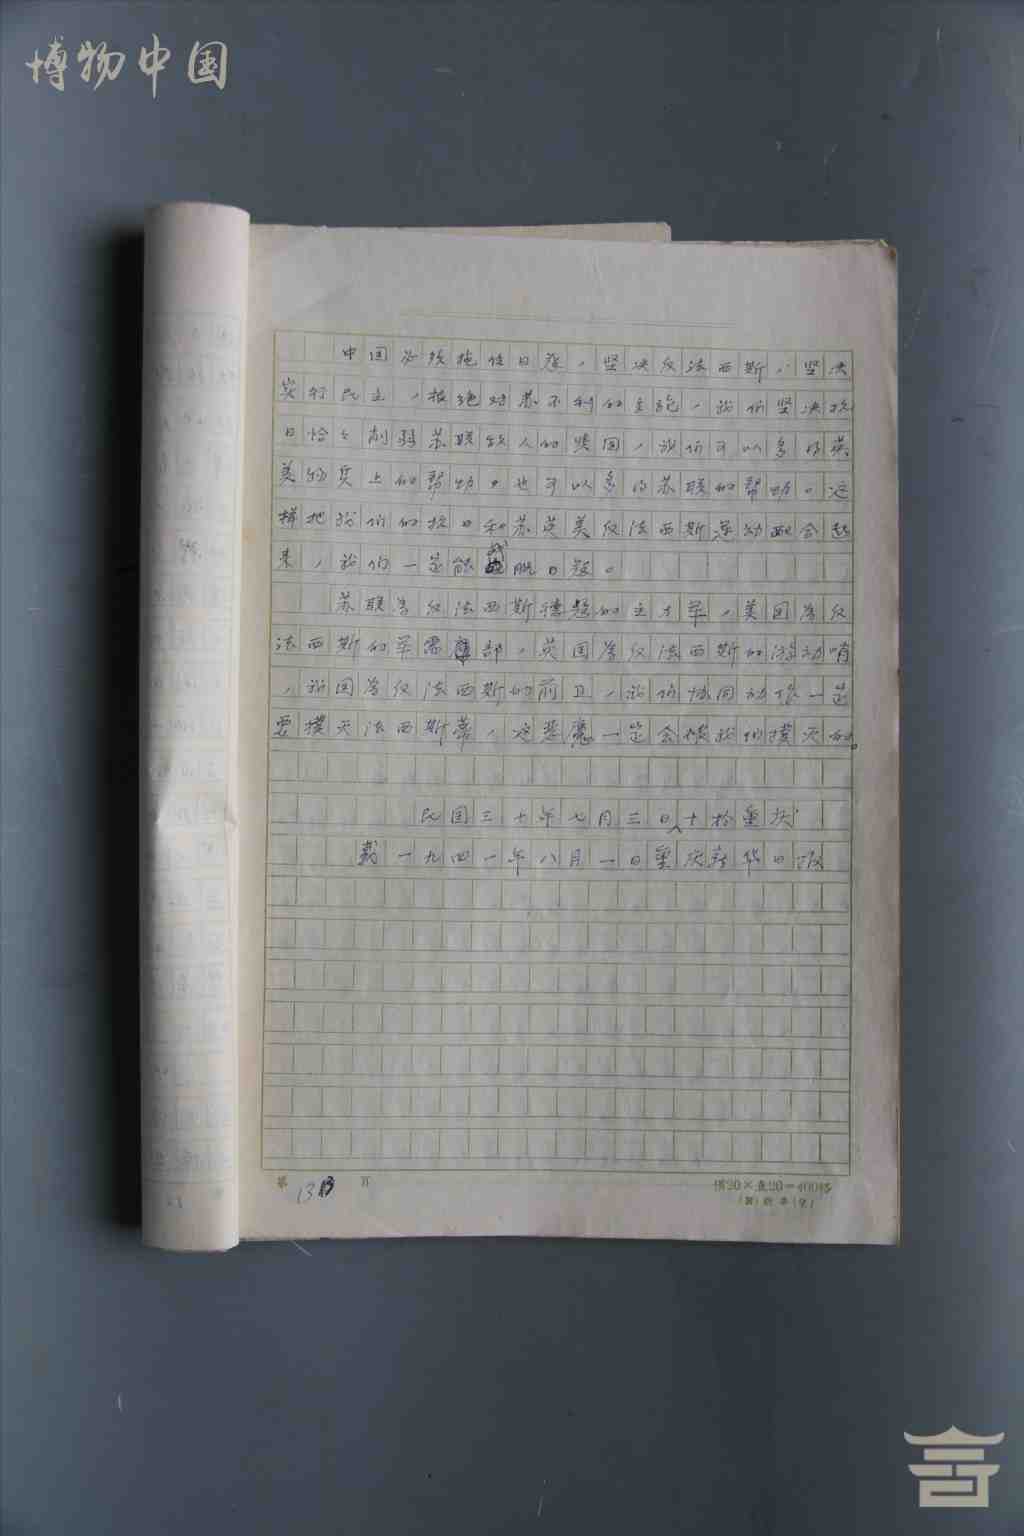 博物中国
中国必须拖住日寇，坚决反法西斯，坚决
实行民主，拒绝对苏不利的主张，我们坚决抗
日恰恰削弱苏联敌人的集团，我们可以多得英
美物质上的帮助。也可以多得苏联的帮助。这
样把我们的抗日和苏英美反法西斯运动配合起
来，我们一定能战胜日寇。
苏联为反法西斯德的主力军，美国为反
法西斯的军需部，英国为反法西斯的游动哨
，我国为反法西斯的前卫，我们协同动作一定
要扑灭法西斯蒂，这恶魔一定会被我们扑灭的。
民国三十年七月三日，于重庆
载一九四一年八月一日重庆新华日报
第 13 页
横20×直20=400格